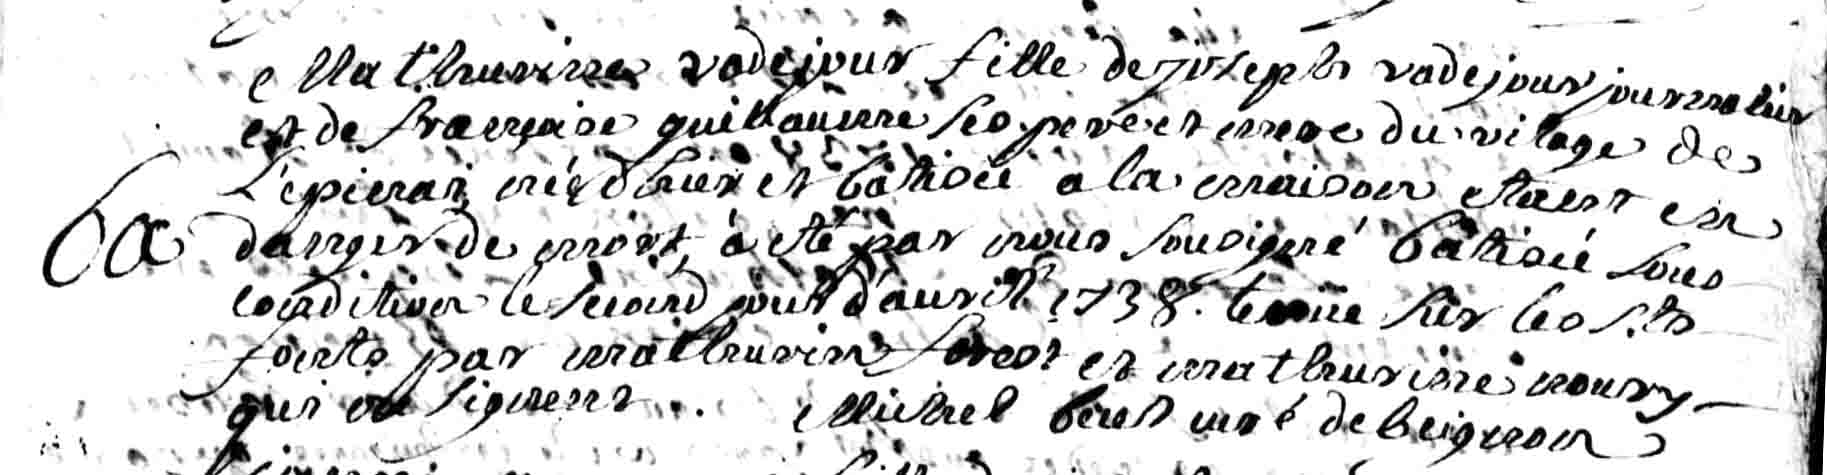 Mathurinne vadejour fille de joseph vadejour journalier
et de françoise guillaume ses pere et mere du vilage de
L'épinai, née d'hier et bâtisée a la maison etant en
ba danger de mort, à eté par nous sousigné bâtisée sous
condition le second jour d'auvril 1738. tenüe sur les s.ts
fonts par mathurin forest et mathurinne noury
qui ne signent. Michel curé de beignon